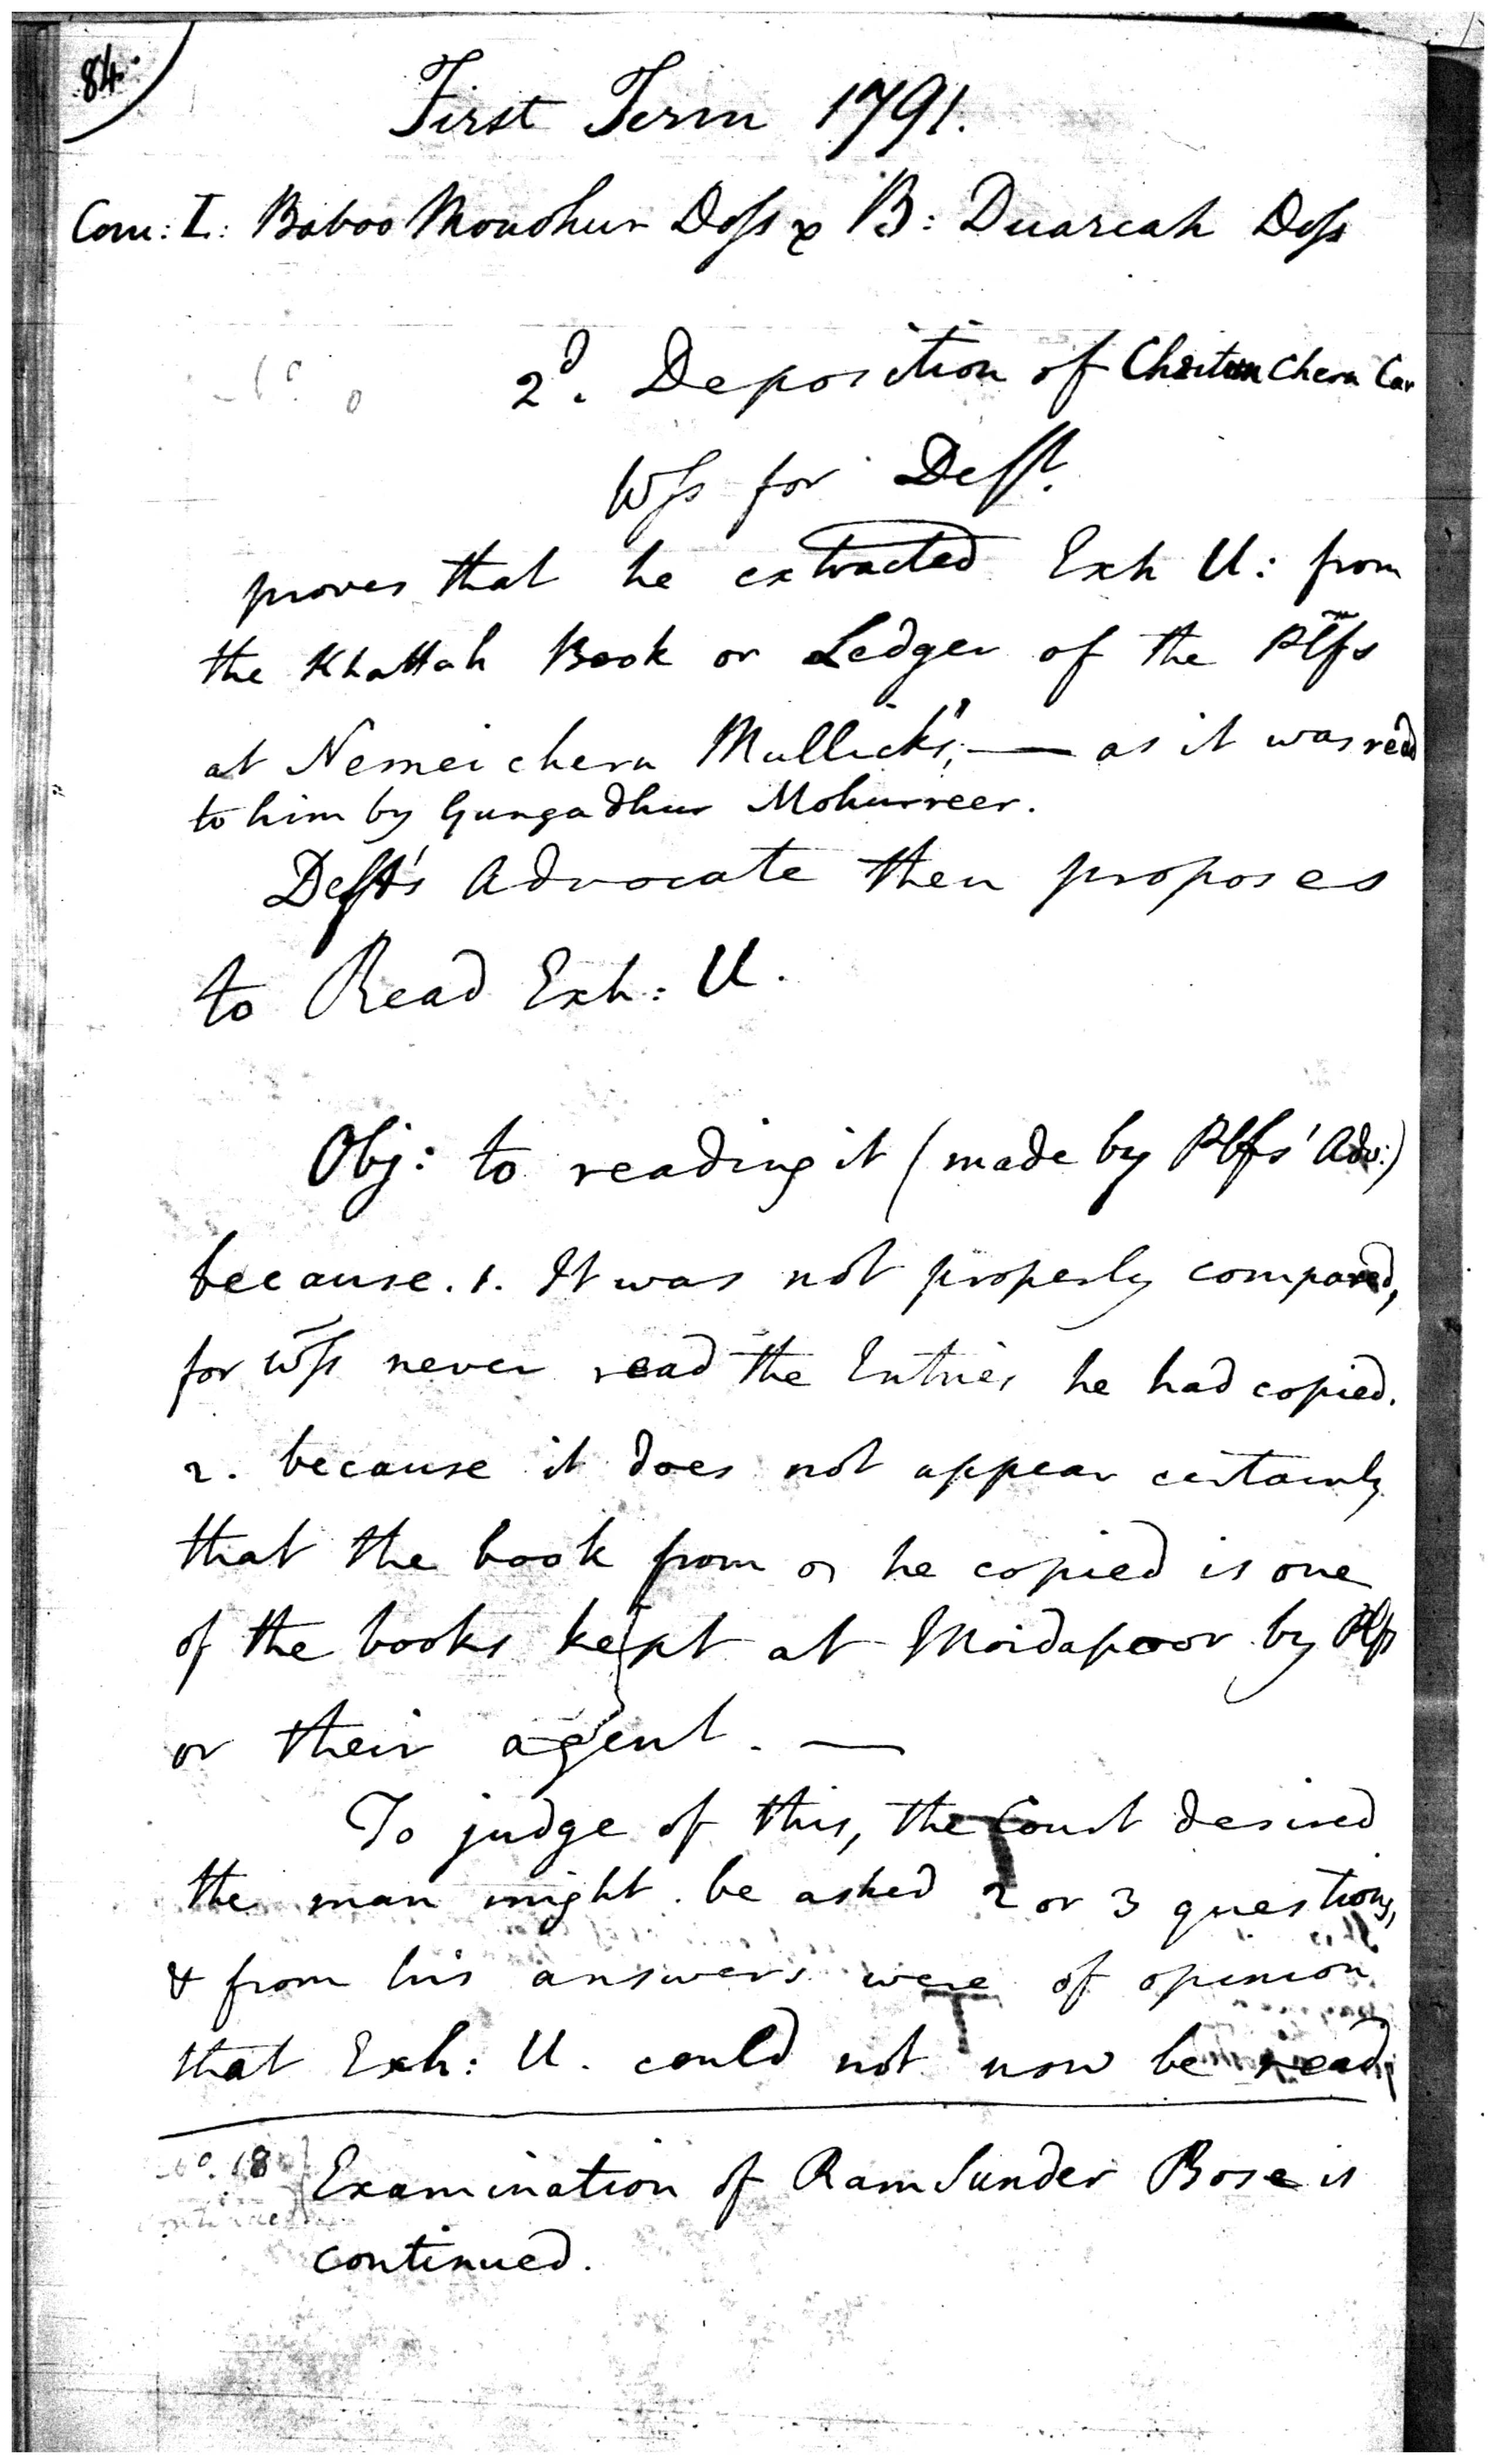 84.
First Term 1791.
Com: I: Baboo Monohur Doss & B: Duarcah Doss
2d. Deposition of Choitun Chern Car
Wss for Deft.
proves that he extracted Exh U: from
the Khattah Book or Ledger of the Plfs
at Nemei chern Mullick's, — as it was read
to him by Gungadhur Mohurreer.
Deft's Advocate then proposes
to Read Exh: U.
Obj: to reading it (made by Plfs' Adv:)
because. 1. It was not properly compared,
for Wss never read the Entries he had copied.
2. because it does not appear certainly
that the book from he copied is one
of the books kept at Moidapoor by Plfs
or their agent. —
To judge of this, the Court desired
the man might be asked 2 or 3 questions,
& from his answers were of opinion
that Exh: U. could not now be read
No. 18 Examination of Ram Sunder Bose is
continued.